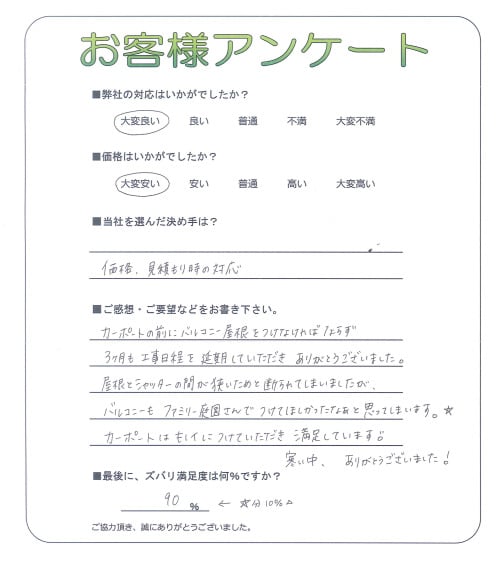 お客様アンケート
■弊社の対応はいかがでしたか？
大変良い 良い 普通 不満 大変不満
■価格はいかがでしたか？
大変安い 安い 普通 高い 大変高い
■当社を選んだ決め手は？
価格、見積もり時の対応
■ご感想・ご要望などをお書き下さい。
カーポートの前にバルコニー屋根をつけなければならず
3ヶ月も工事日程を延期していただきありがとうございました。
屋根とシャッターの間が狭いためと断られてしまいましたが、
バルコニーもファミリー庭園さんでつけてほしかったなぁと思ってしまいます。☆
カーポートはキレイにつけていただき満足しています!!
寒い中、ありがとうございました！
■最後に、ズバリ満足度は何％ですか？
90 % ← ☆分10%△
ご協力頂き、誠にありがとうございました。